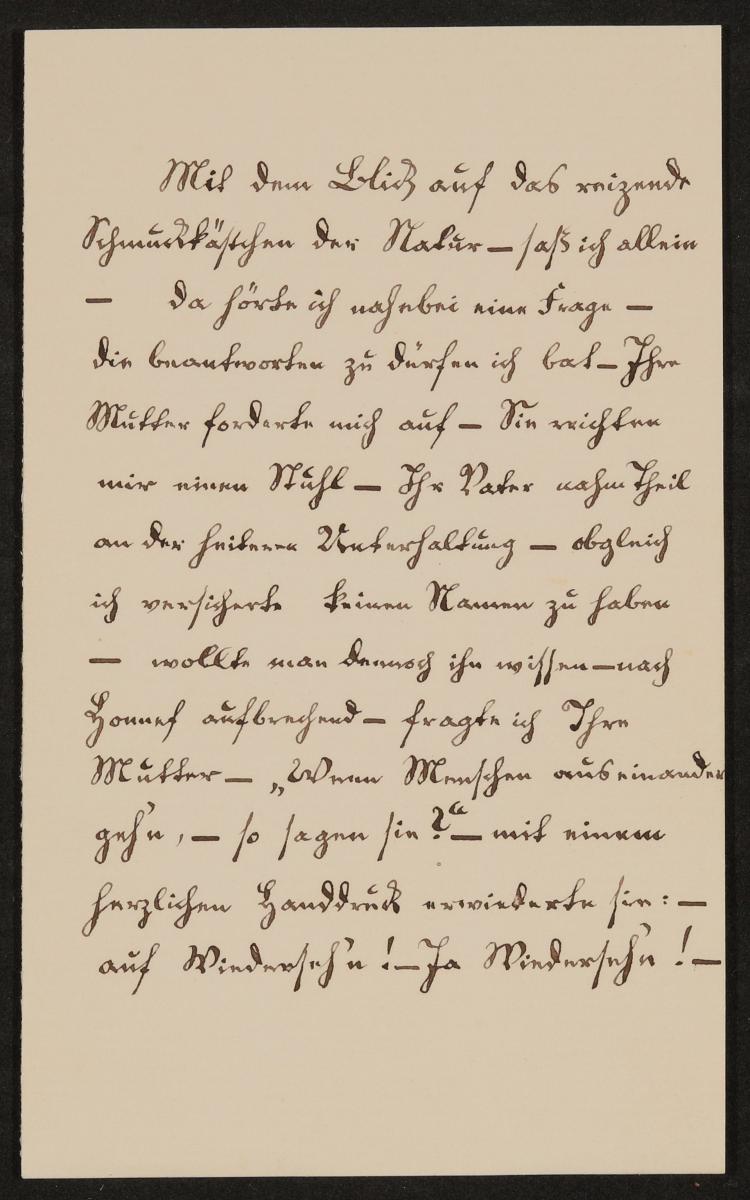 Mit dem Blick auf das reizende
Schmuckkästchen der Natur — saß ich allein
— da hörte ich nahebei eine Frage —
die beantworten zu dürfen ich bat — Ihre
Mutter forderte mich auf — Sie reichten
mir einen Stuhl — Ihr Vater nahm Theil
an der heiteren Unterhaltung — obgleich
ich versicherte keinen Namen zu haben
— wollte man dennoch ihn wissen — nach
Honnef aufbrechend — fragte ich Ihre
Mutter — „Wenn Menschen auseinander
geh'n, — so sagen sie?“ — mit einem
herzlichen Handdruck erwiederte sie: —
auf Wiederseh'n! — Ja Wiederseh'n! —